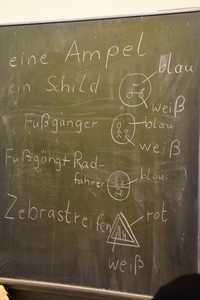 eine Ampel
blau
ein Schild
weiß
Fußgänger
blau
weiß
Fußgäng+Rad-
fahrer
blau
Zebrastreifen
rot
weiß